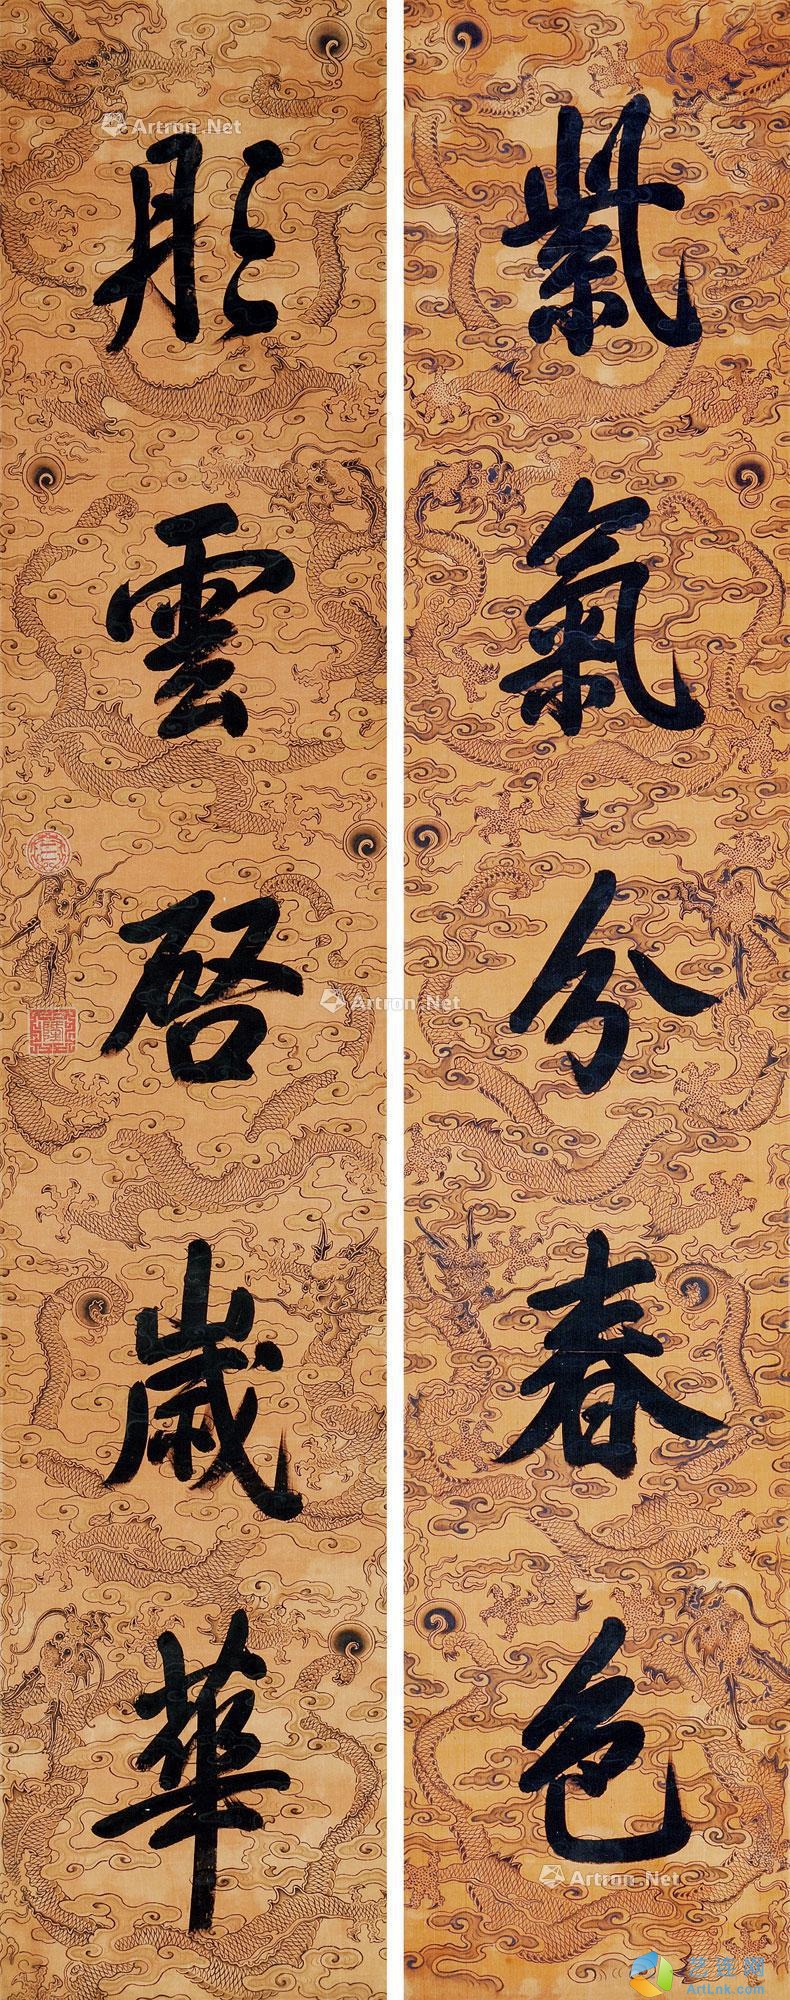 紫氣分春色
彤雲啓歲華
Artron.Net
Artron.Net
Artron.Net
艺连网
ArtLnk.com